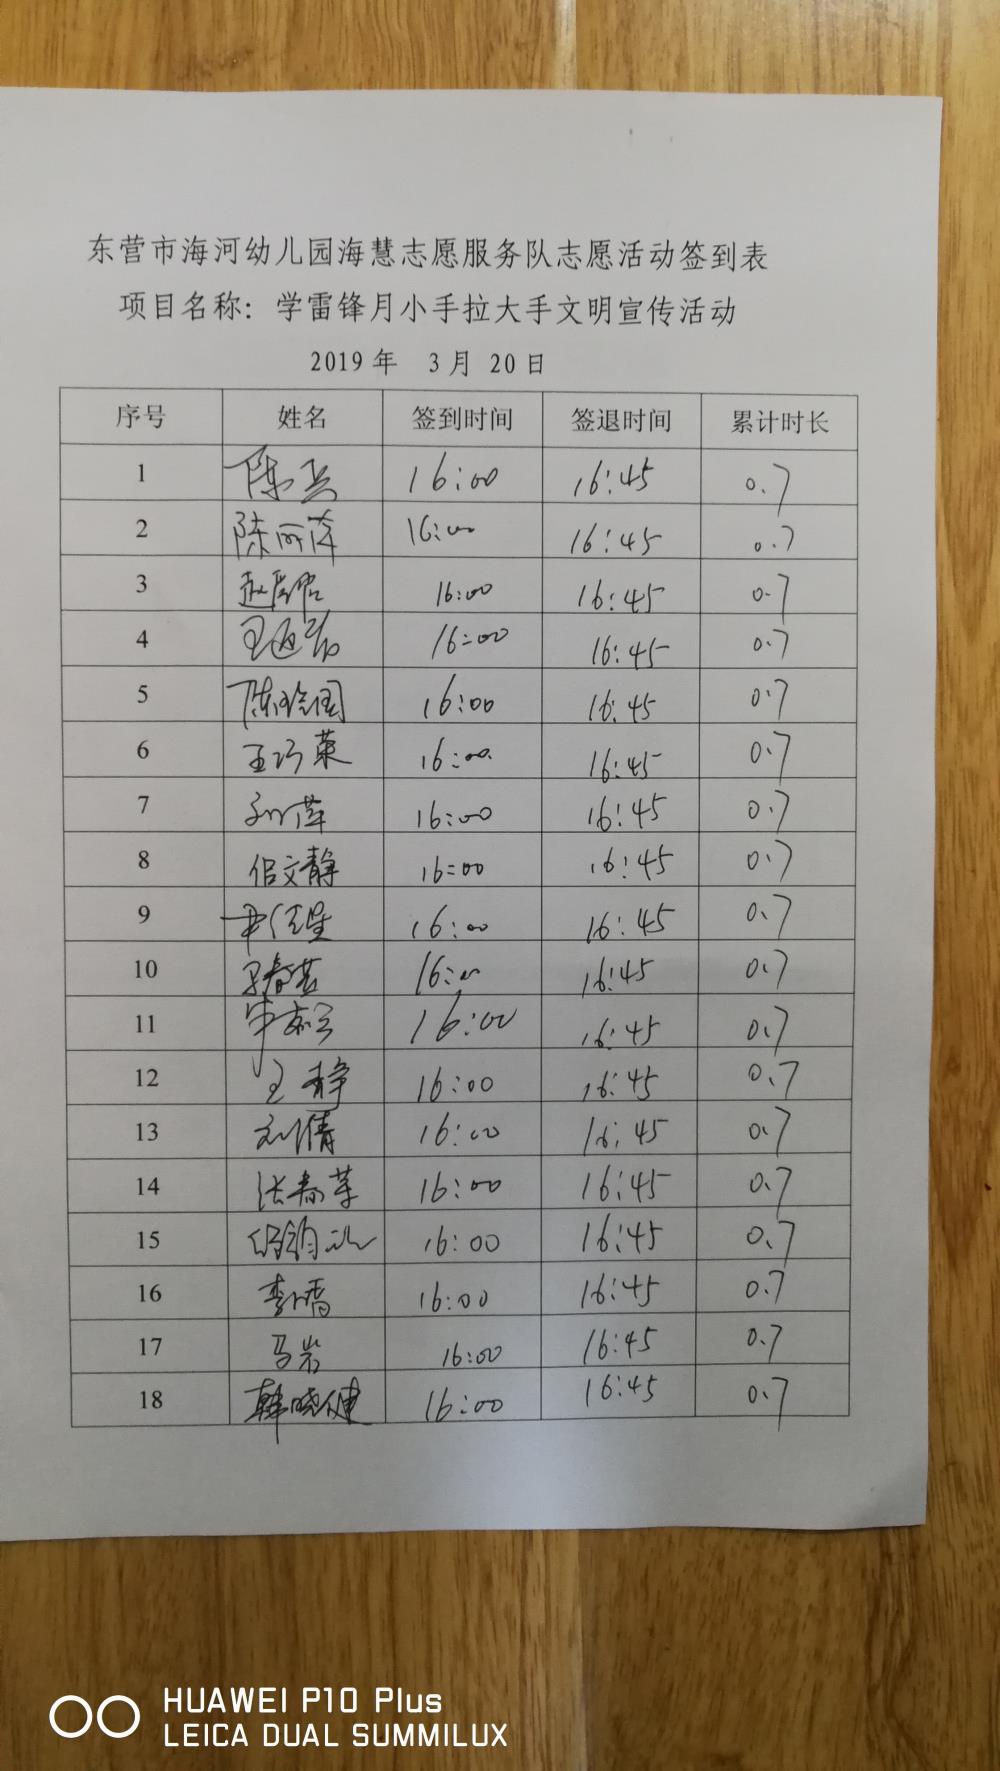 东营市海河幼儿园海慧志愿服务队志愿活动签到表
项目名称：学雷锋月小手拉大手文明宣传活动
2019 年 3 月 20 日
序号 姓名 签到时间 签退时间 累计时长
1 16:00 16:45 0.7
2 陈丽萍 16:00 16:45 0.7
3 16:00 16:45 0.7
4 16:00 16:45 0.7
5 16:00 16:45 0.7
6 王巧荣 16:00 16:45 0.7
7 刘萍 16:00 16:45 0.7
8 文静 16:00 16:45 0.7
9 16:00 16:45 0.7
10 16:00 16:45 0.7
11 16:00 16:45 0.7
12 王静 16:00 16:45 0.7
13 刘倩 16:00 16:45 0.7
14 张春苹 16:00 16:45 0.7
15 16:00 16:45 0.7
16 16:00 16:45 0.7
17 马岩 16:00 16:45 0.7
18 韩晓健 16:00 16:45 0.7
HUAWEI P10 Plus
LEICA DUAL SUMMILUX